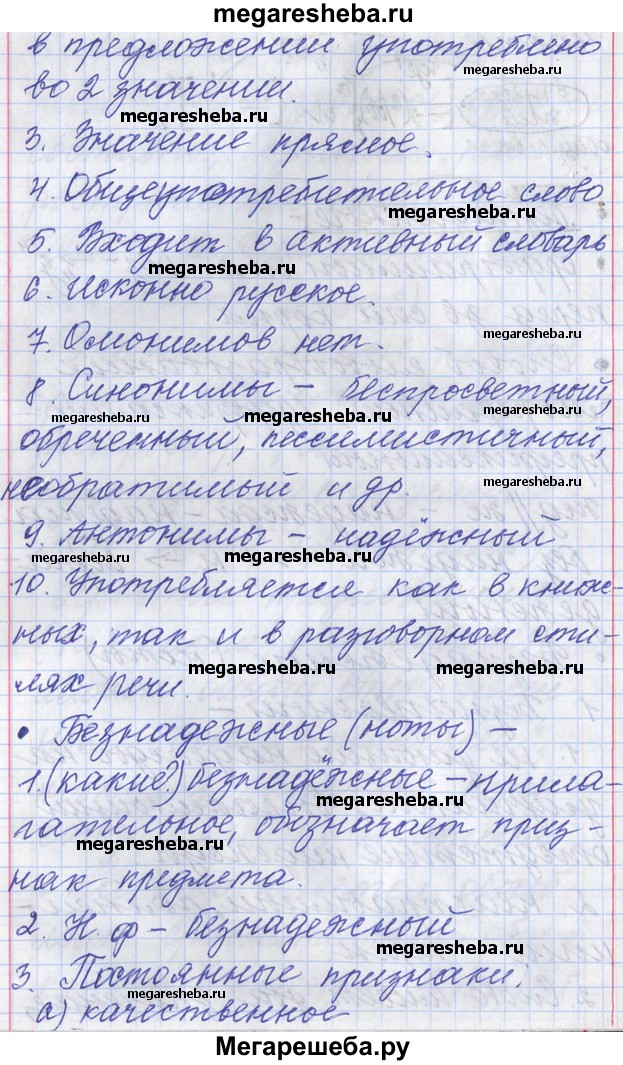 megaresheba.ru
в предложении употреблено
megaresheba.ru
во 2 значении.
megaresheba.ru
3. Значение прямое.
4. Общеупотребительное слово
megaresheba.ru
5. Входит в активный словарь
megaresheba.ru
6. Исконно русское.
7. Омонимов нет.
megaresheba.ru
8. Синонимы – беспросветный,
megaresheba.ru megaresheba.ru megaresheba.ru
обреченный, пессимистичный,
необратимый и др.
9. Антонимы – надёжный
megaresheba.ru megaresheba.ru megaresheba.ru
10. Употребляется как в книж-
ных, так и в разговорном сти-
megaresheba.ru megaresheba.ru
лях речи.
• Безнадежные (ноты) –
1. (какие?) безнадёжные – прила-
megaresheba.ru
гательное, обозначает приз-
megaresheba.ru
нак предмета.
2. Н.ф – безнадежный
megaresheba.ru
3. Постоянные признаки:
megaresheba.ru
а) качественное
Мегарешеба.ру